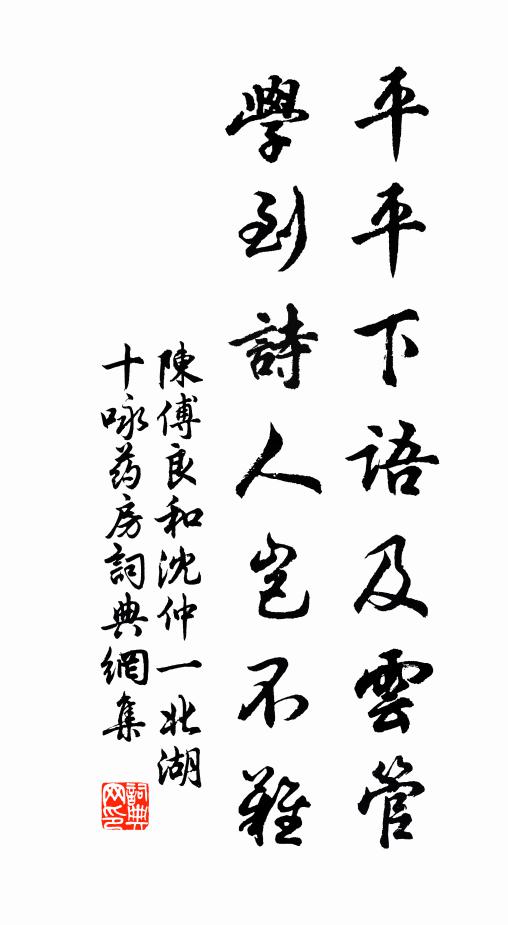 平平下語及雲管
學到詩人豈不難
陳傅良和沈仲一北湖
十咏药房詞典網集
詞典网印